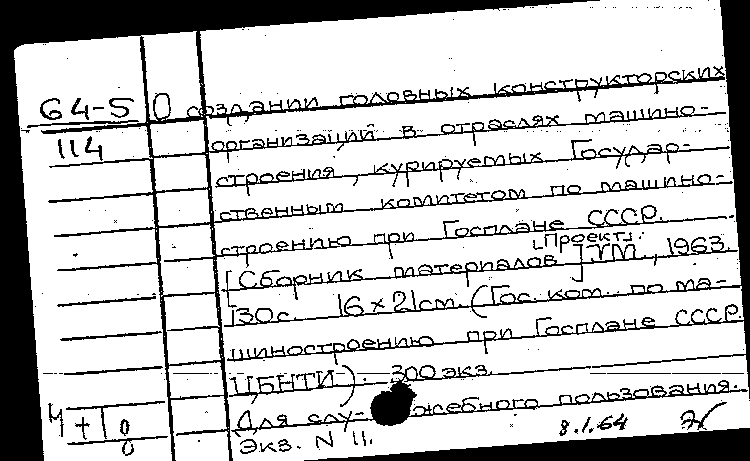 64-5 О создании головных конструкторских
114 организаций в отраслях машино-
строения, курируемых Государ-
ственным комитетом по машино-
строению при Госплане СССР.
[Проект].
[Сборник материалов] М., 1963.
130с. 16×21см. (Гос. ком. по ма-
шиностроению при Госплане СССР.
ЦБНТИ). 300 экз.
Для слу-жебного пользования.
Экз. N 11.
8.1.64